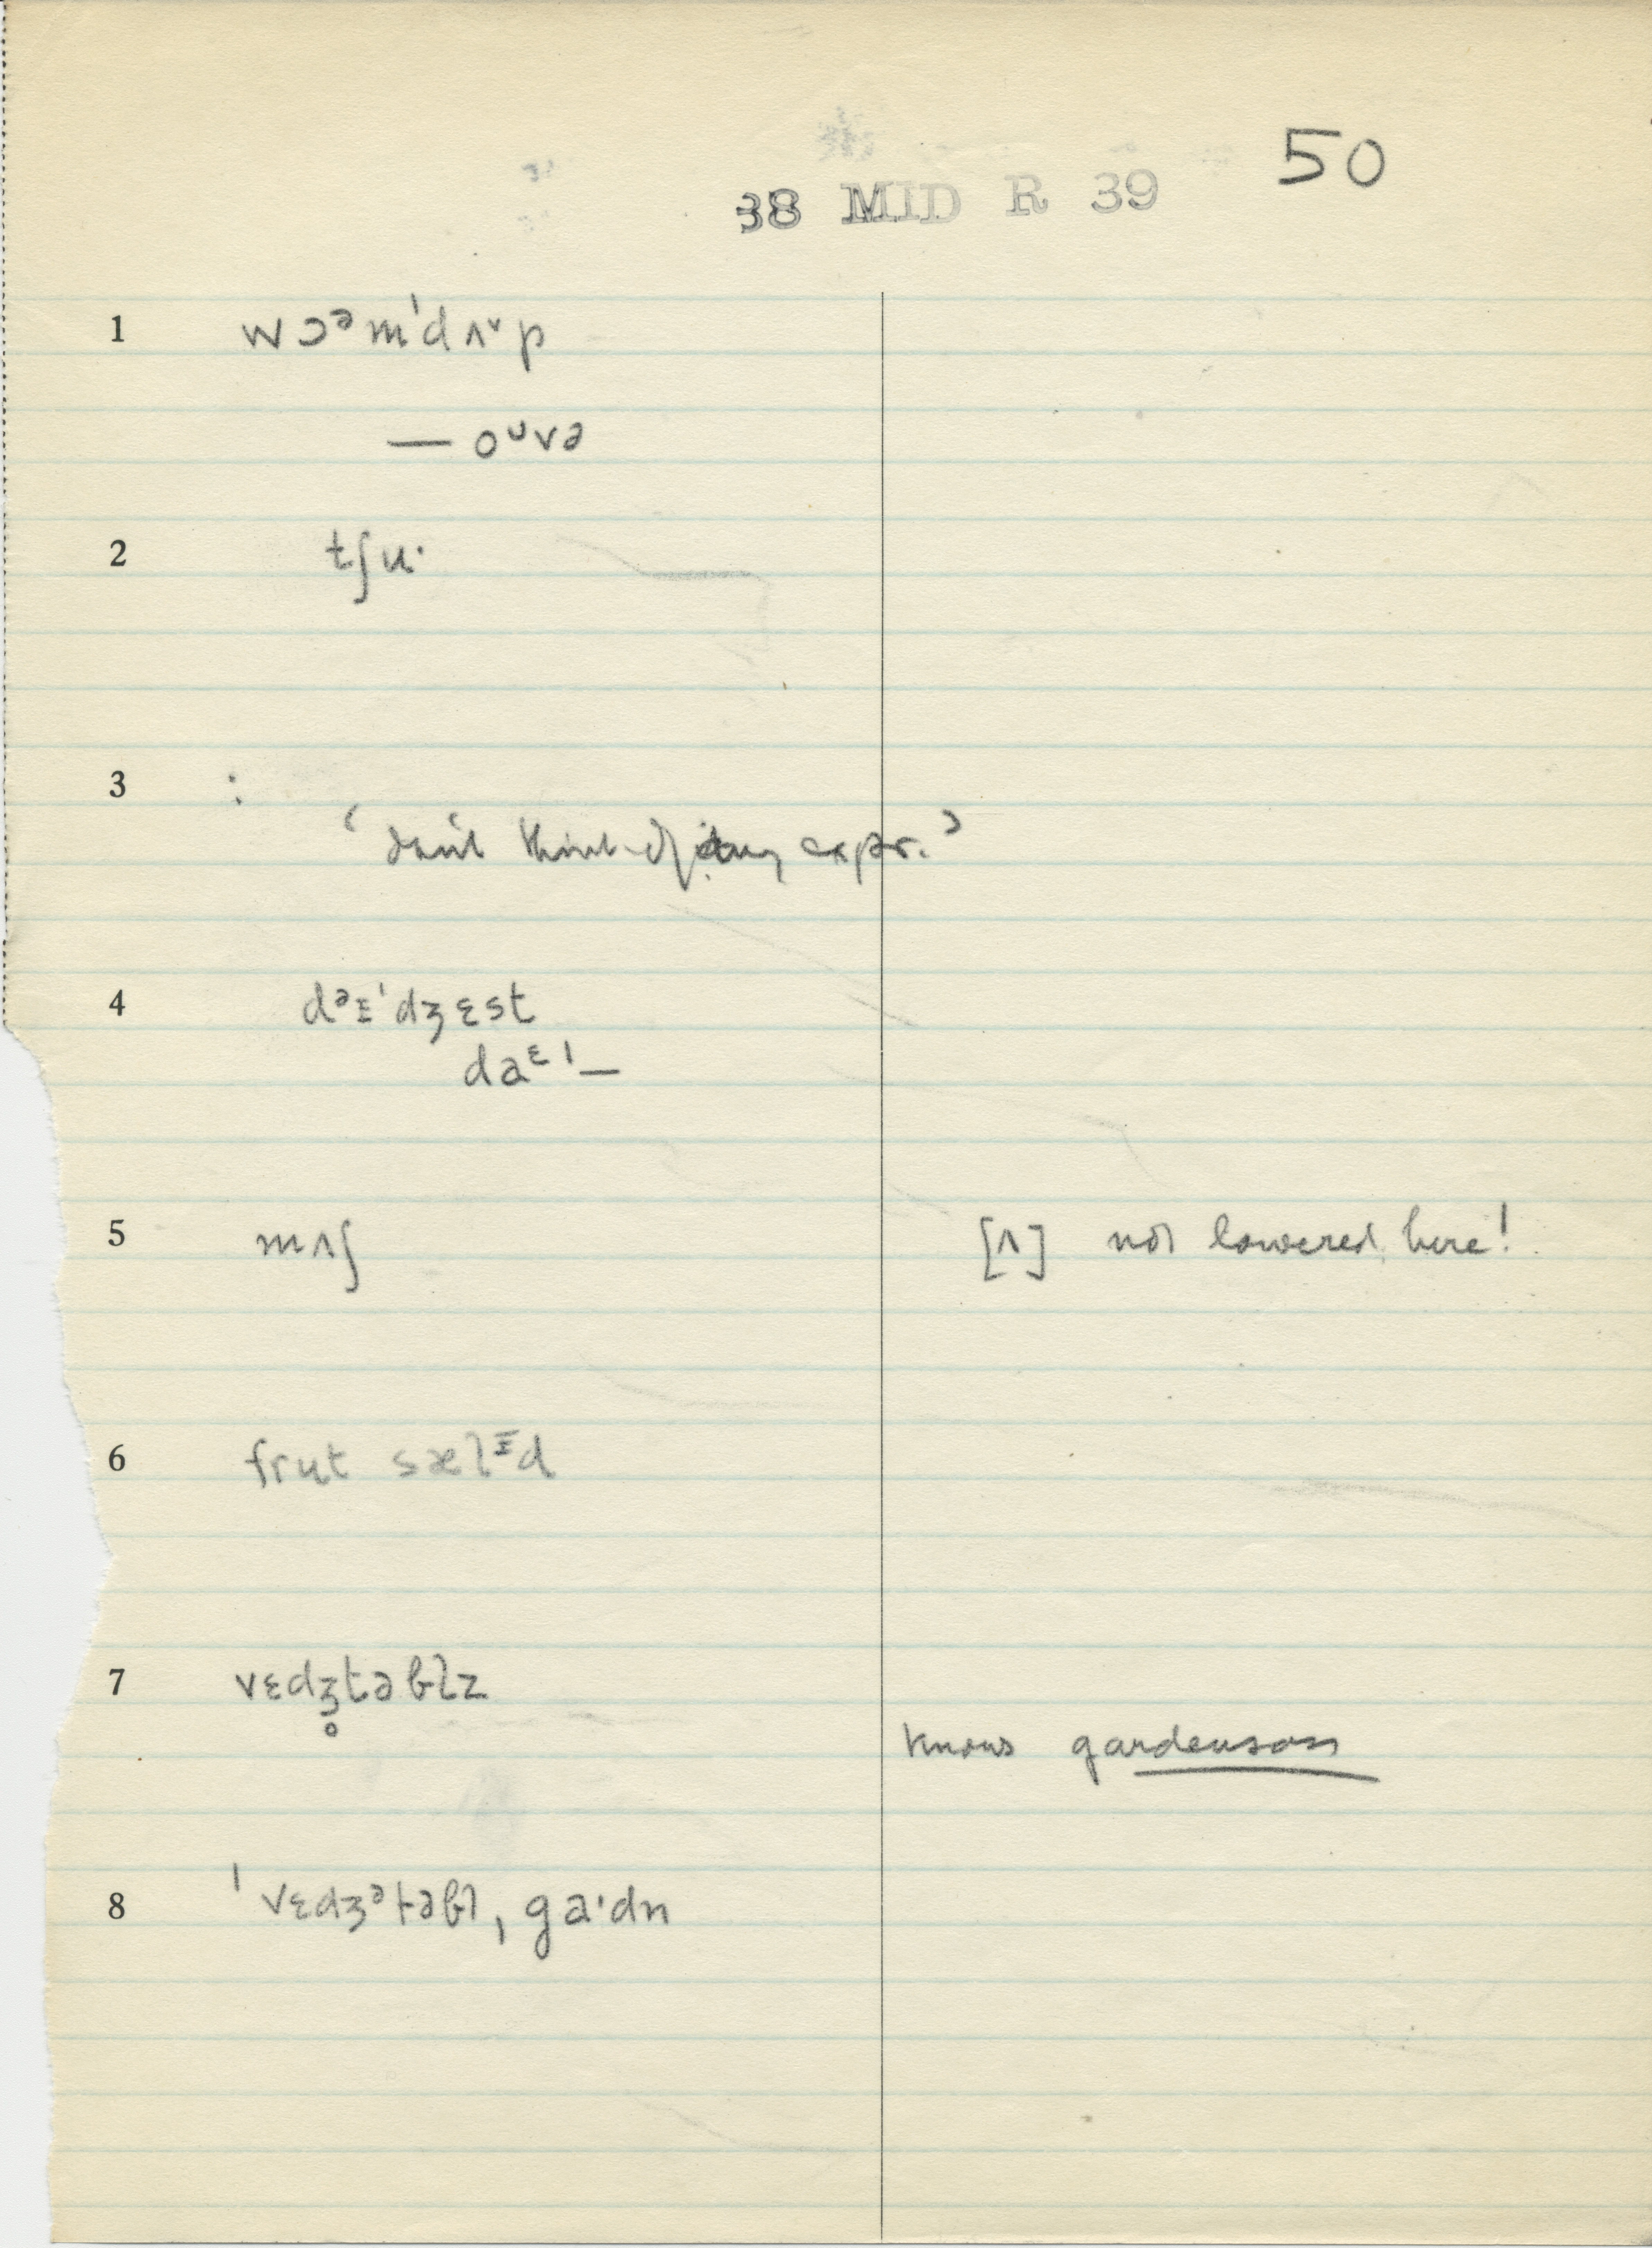 50
38 MID R 39
1 wɔᵊm'dʌ˅p
— oᵘvə
2 tʃu·
3 :
‘don't think of any expr.’
4 dᵊɪ'dʒɛst
daᵋ'—
5 mʌʃ [ʌ] not lowered here!
6 frut sælᶦd
7 vɛdʒ̥təblz
knows gardensass
8 'vɛdʒᵊtəbl ˌga·dn